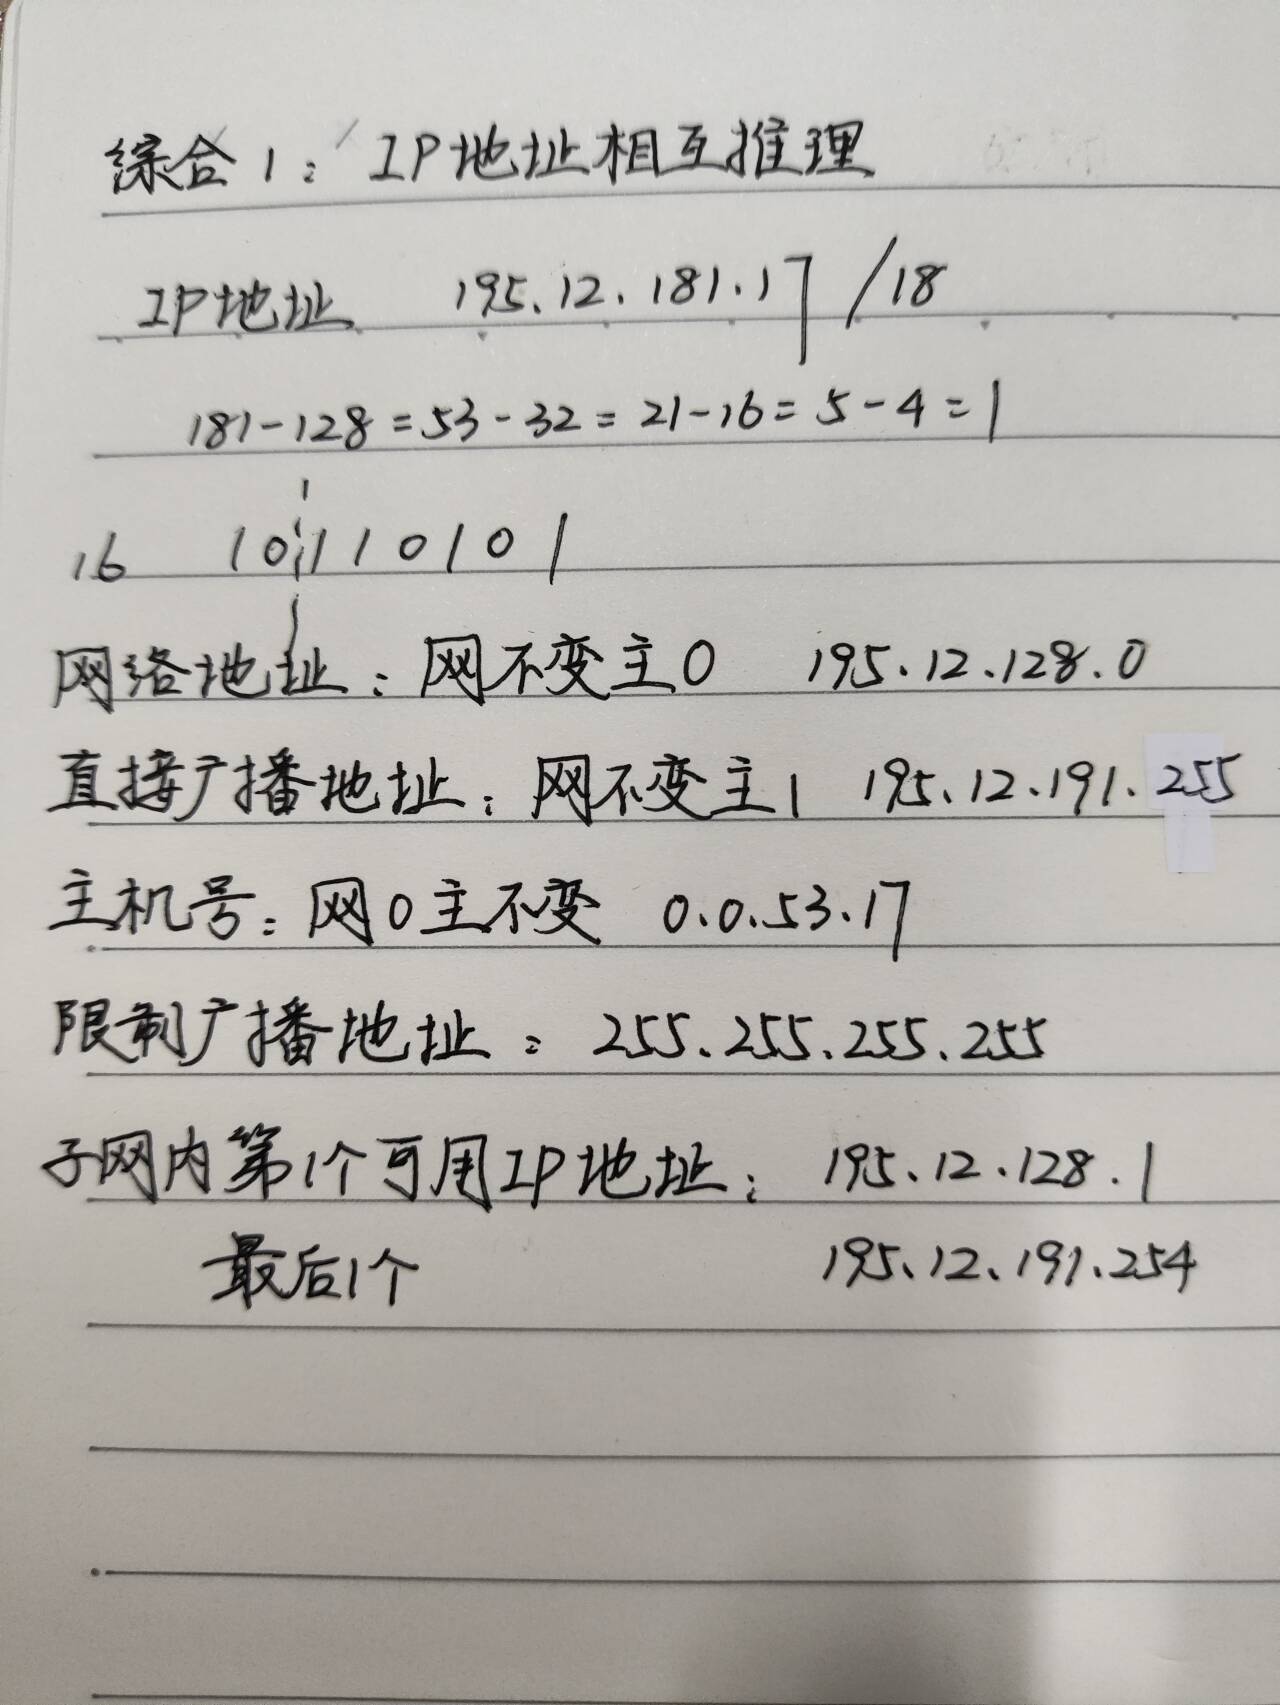 综合1: IP地址相互推理
IP地址 195.12.181.17 /18
181-128=53-32=21-16=5-4=1
16 10110101
网络地址:网不变主0 195.12.128.0
直接广播地址:网不变主1 195.12.191.255
主机号:网0主不变 0.0.53.17
限制广播地址:255.255.255.255
子网内第1个可用IP地址: 195.12.128.1
最后1个 195.12.191.254